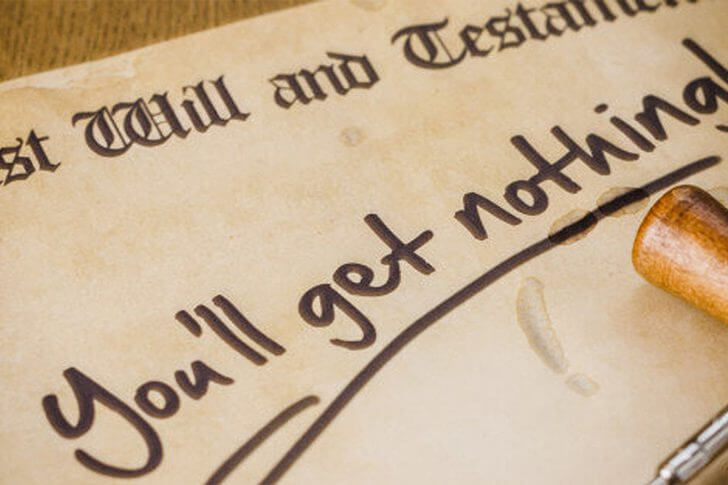 st Will and Testamen
You'll get nothing